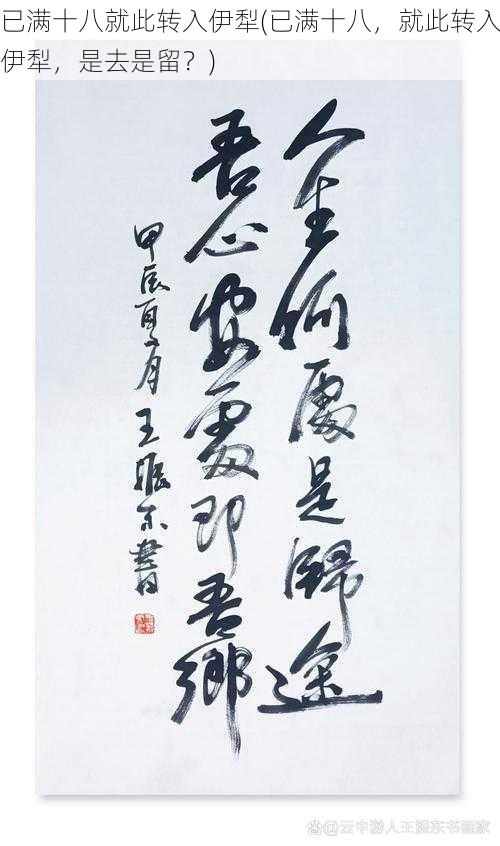 已满十八就此转入伊犁(已满十八，就此转入
伊犁，是去是留？)
人生何處是歸途
吾心安處即吾鄉
甲辰百六月王振东書
@云中游人王振东书画家